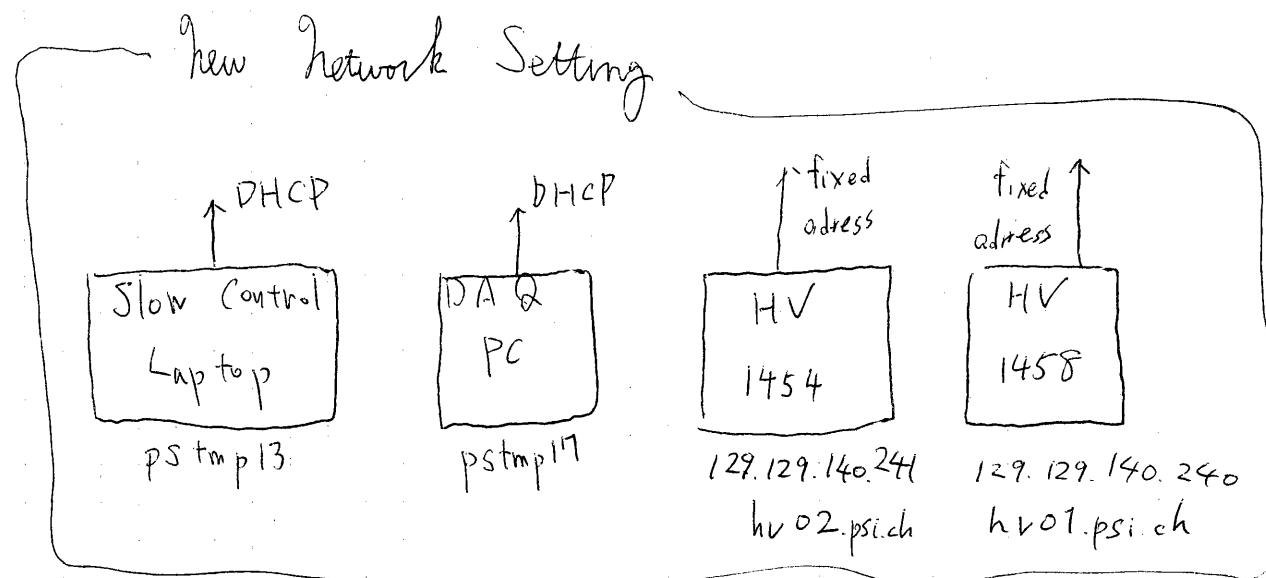 New Network Setting
DHCP
Slow Control
Laptop
pstmp13
DHCP
DAQ
PC
pstmp17
fixed
adress
HV
1454
129.129.140.241
hv02.psi.ch
fixed
adress
HV
1458
129.129.140.240
hv01.psi.ch